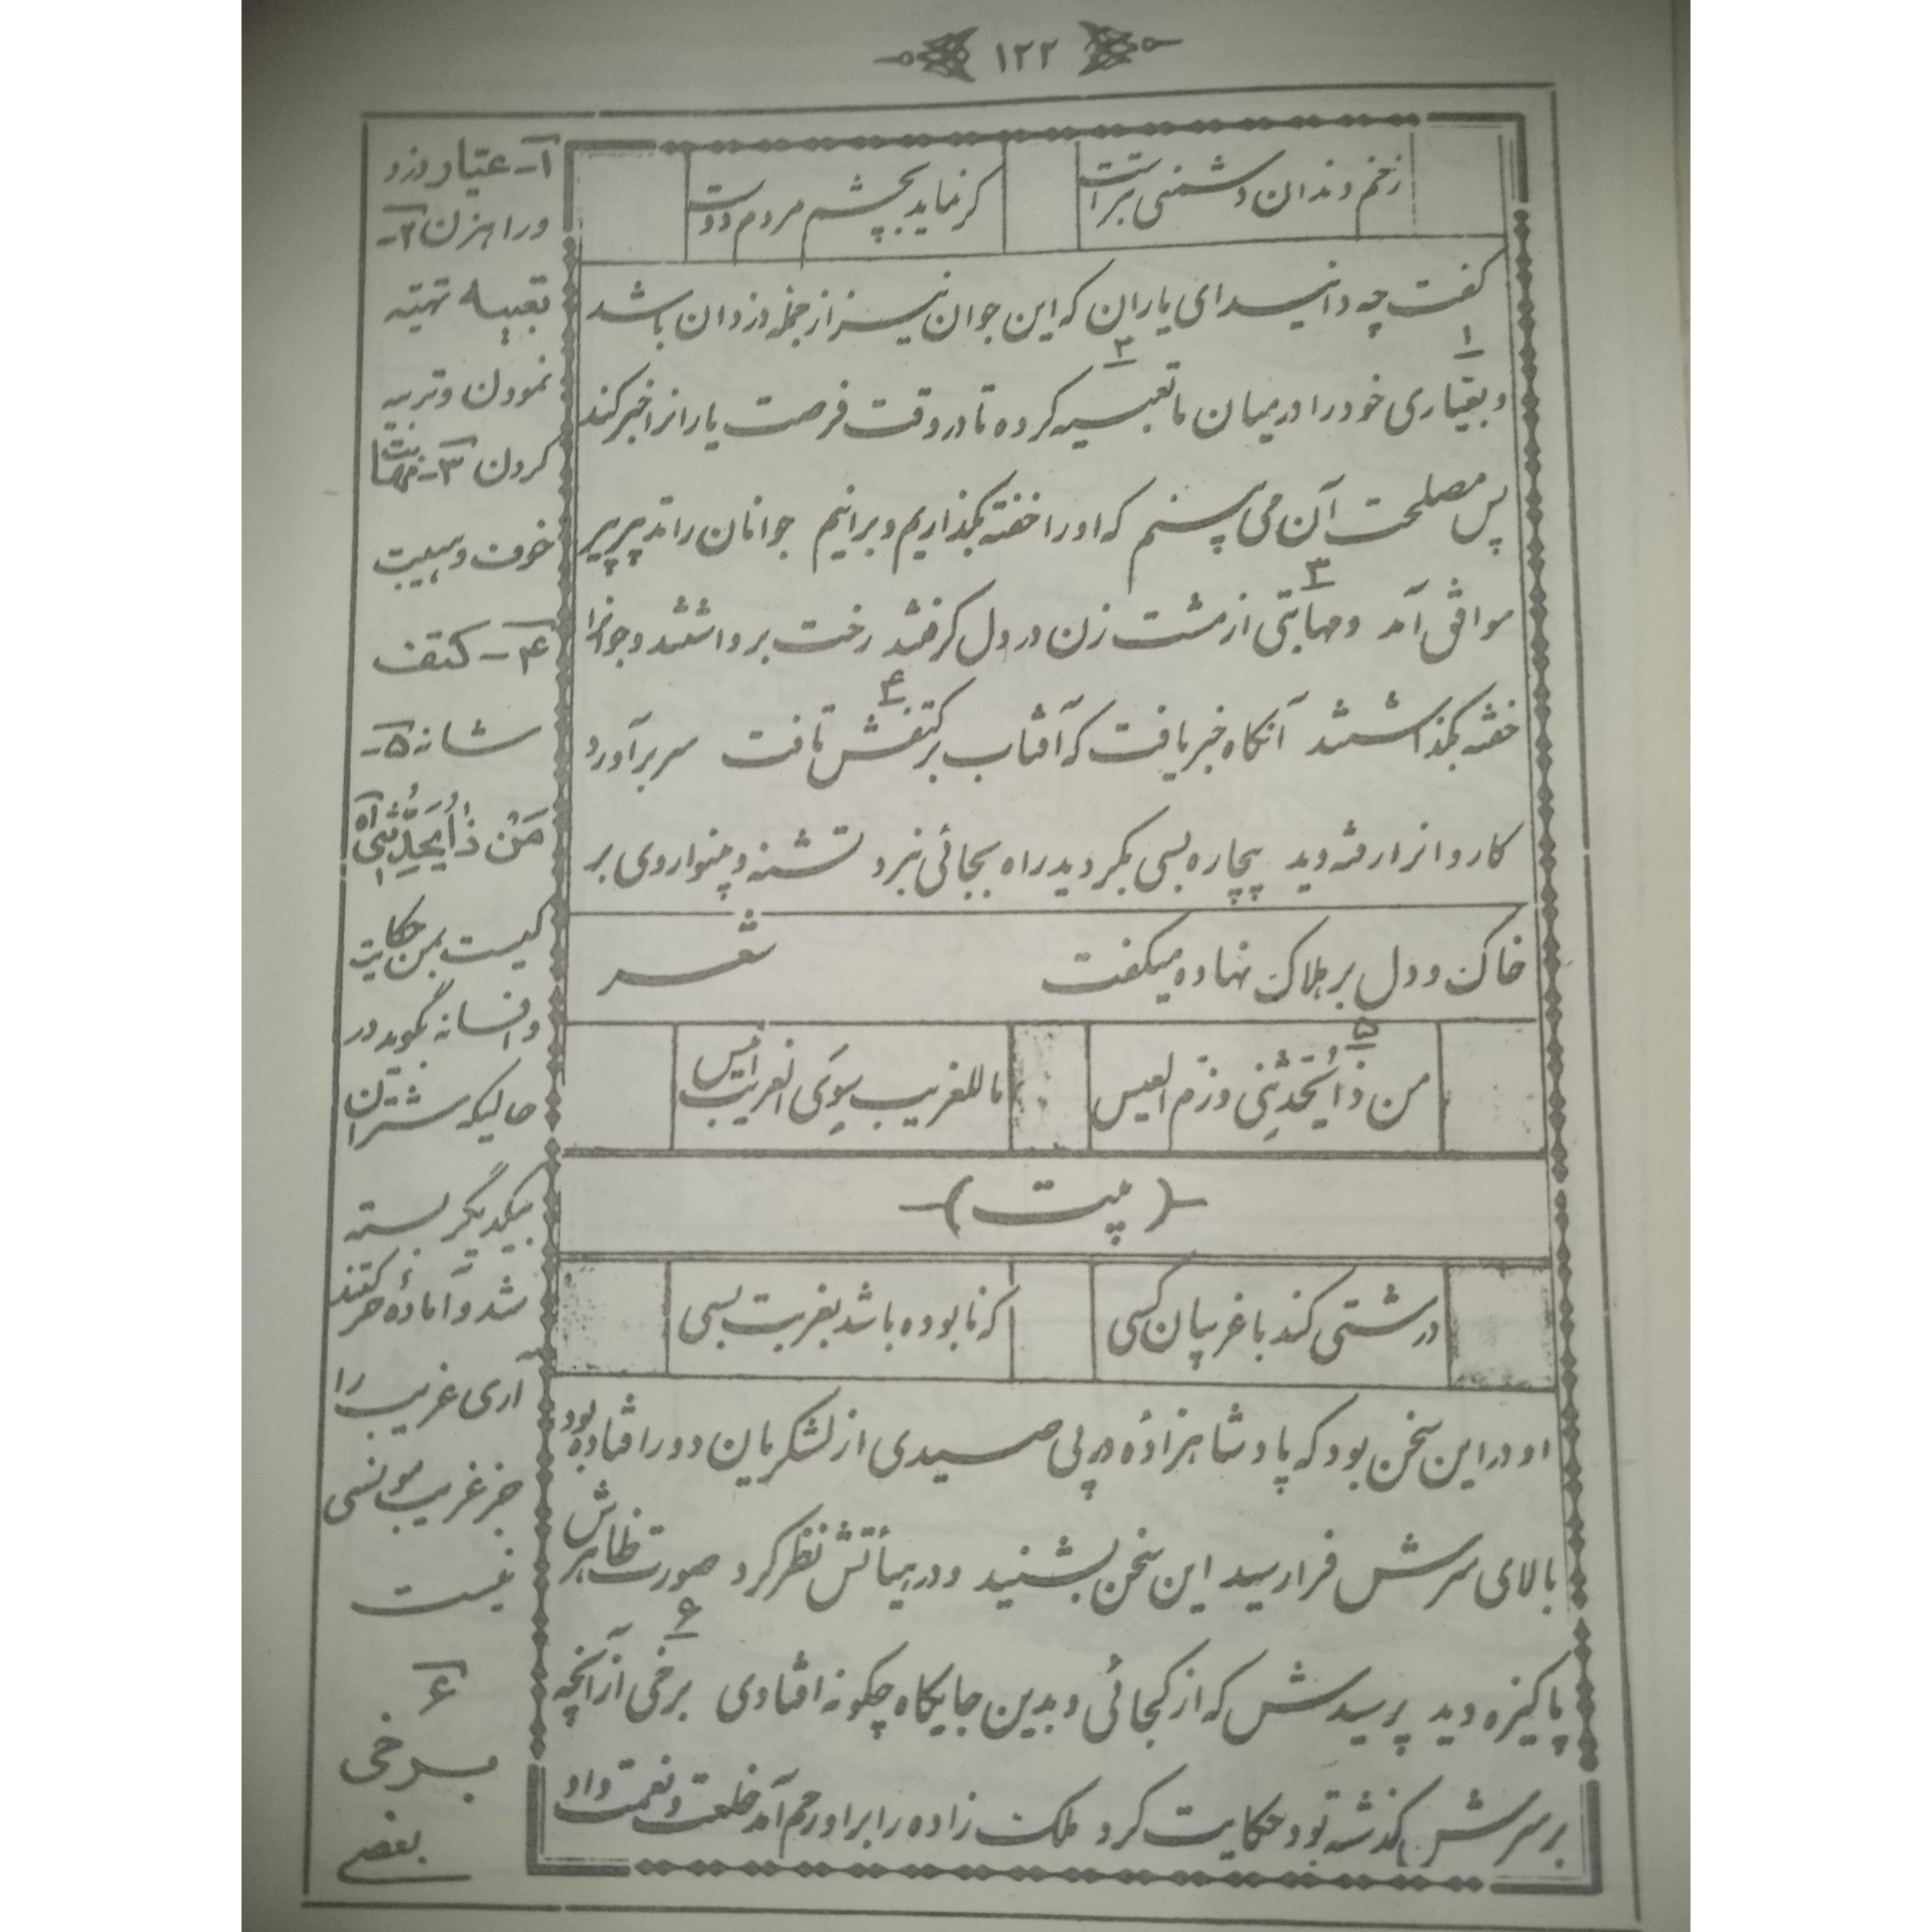 ۱۲۲
زخم دندان دشمنی بتر است
که نماید بچشم مردم دوست
گفت چه دانید ای یاران که این جوان نیز از جمله دزدان باشد
۱
۲
و بعیّاری خود را در میان ما تعبیه کرده تا در وقت فرصت یارانرا خبر کند
پس مصلحت آن می بینم که او را خفته بگذاریم و برانیم جوانان را تدبیر پیر
۳
موافق آمد و مهابتی از مشت زن در دل گرفتند رخت برداشتند و جوانرا
۴
خفته بگذاشتند آنگاه خبر یافت که آفتاب بر کتفش تافت سر برآورد
کاروانرا رفته دید بیچاره بسی بگردید راه بجائی نبرد تشنه و بینوا روی بر
خاک و دل بر هلاک نهاده میگفت شعر
۵
من ذا یُحَدِّثُنی و زمّ العیس
ما للغریب سِوَی الغریب انیس
-( بیت )-
درشتی کند با غریبان کسی
که نابوده باشد بغربت بسی
او در این سخن بود که پادشاهزادهٔ در پی صیدی از لشکریان دور افتاده بود
بالای سرش فرا رسید این سخن بشنید و در هیأتش نظر کرد صورت ظاهرش
۶
پاکیزه دید پرسیدش که از کجائی و بدین جایگاه چگونه افتادی برخی از آنچه
بر سرش گذشته بود حکایت کرد ملک زاده را بر او رحم آمد خلعت و نعمت داد
۱- عیّار دزد
و راهزن ۲-
تعبیه تهیّه
نمودن و تربیه
کردن ۳- مهابت
خوف و هیبت
۴- کتف
شانه ۵-
مَنْ ذا یُحَدِّثُنی آه
کیست بمن حکایت
و افسانه بگوید در
حالیکه شتران
بیکدیگر بسته
شد و آمادهٔ حرکتند
آری غریب را
جز غریب مونسی
نیست
۶
برخی
بعضی